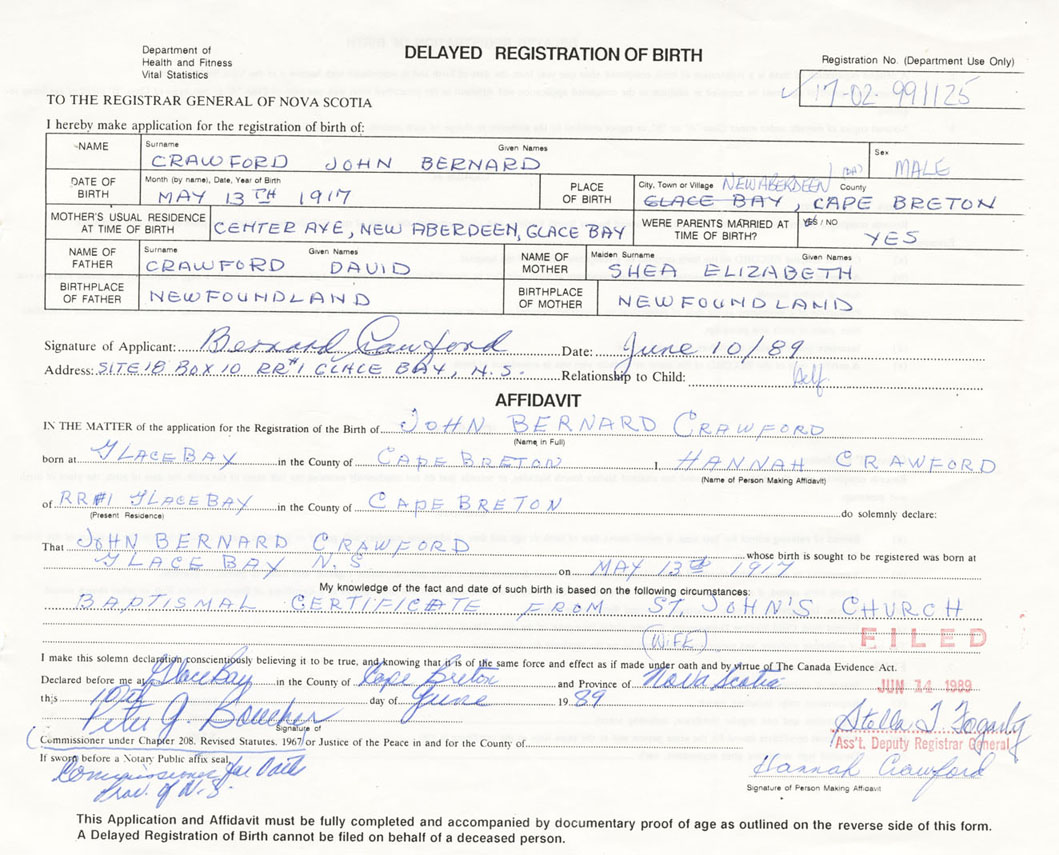 Department of
Health and Fitness
Vital Statistics
DELAYED REGISTRATION OF BIRTH
Registration No. (Department Use Only)
17-02-991125
TO THE REGISTRAR GENERAL OF NOVA SCOTIA
I hereby make application for the registration of birth of:
NAME Surname Given Names Sex
CRAWFORD JOHN BERNARD MALE
DATE OF BIRTH Month (by name), Date, Year of Birth PLACE OF BIRTH City, Town or Village NEW ABERDEEN County
MAY 13TH 1917 GLACE BAY, CAPE BRETON
MOTHER'S USUAL RESIDENCE AT TIME OF BIRTH CENTER AVE, NEW ABERDEEN, GLACE BAY WERE PARENTS MARRIED AT TIME OF BIRTH? YES / NO YES
NAME OF FATHER Surname Given Names NAME OF MOTHER Maiden Surname Given Names
CRAWFORD DAVID SHEA ELIZABETH
BIRTHPLACE OF FATHER NEWFOUNDLAND BIRTHPLACE OF MOTHER NEWFOUNDLAND
Signature of Applicant: Bernard Crawford Date: June 10/89
Address: SITE 18 BOX 10 RR#1 GLACE BAY, N.S. Relationship to Child: Self
AFFIDAVIT
IN THE MATTER of the application for the Registration of the Birth of JOHN BERNARD CRAWFORD
(Name in Full)
born at GLACE BAY in the County of CAPE BRETON I, HANNAH CRAWFORD
(Name of Person Making Affidavit)
of RR#1 GLACE BAY in the County of CAPE BRETON do solemnly declare:
(Present Residence)
That JOHN BERNARD CRAWFORD whose birth is sought to be registered was born at
GLACE BAY N.S. on MAY 13th 1917
My knowledge of the fact and date of such birth is based on the following circumstances:
BAPTISMAL CERTIFICATE FROM ST. JOHN'S CHURCH
(WIFE) FILED
I make this solemn declaration conscientiously believing it to be true, and knowing that it is of the same force and effect as if made under oath and by virtue of The Canada Evidence Act.
Declared before me at Glace Bay in the County of Cape Breton and Province of Nova Scotia
JUN 14 1989
this 10th day of June 1989
Peter J. Boucher Stella T Fogarty
Signature of
Commissioner under Chapter 208, Revised Statutes, 1967 or Justice of the Peace in and for the County of Ass't. Deputy Registrar General
If sworn before a Notary Public affix seal, Hannah Crawford
Commissioner for Oaths
Prov. of N.S.
Signature of Person Making Affidavit
This Application and Affidavit must be fully completed and accompanied by documentary proof of age as outlined on the reverse side of this form.
A Delayed Registration of Birth cannot be filed on behalf of a deceased person.